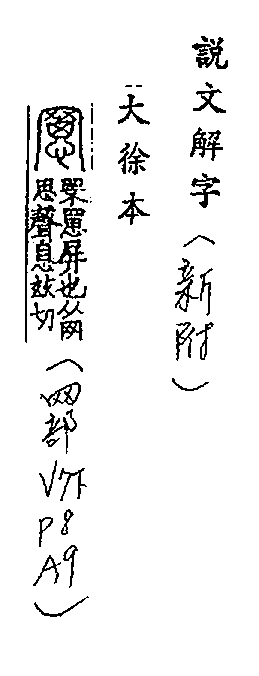 說文解字(新附)
大徐本
罳 罘罳屏也从网
思聲息玆切
(网部
V7下
P8
A9)